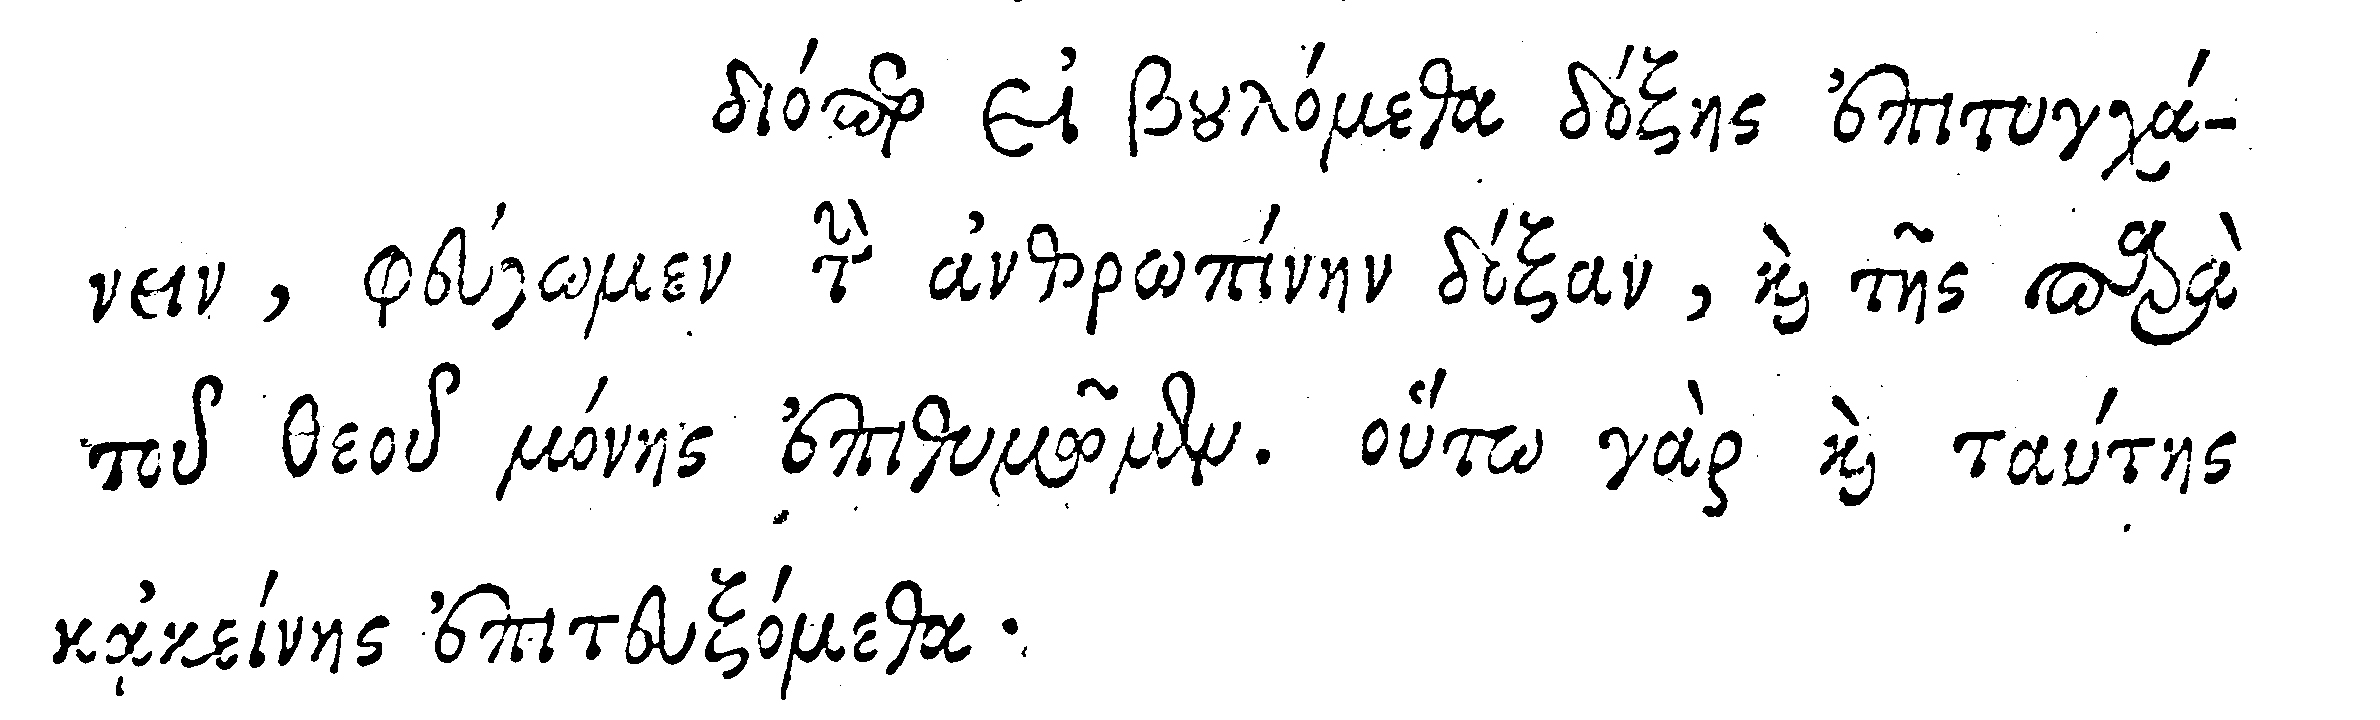 διόπερ εἰ βουλόμεθα δόξης ἐπιτυγχά-
νειν, φεύγωμεν τὴν ἀνθρωπίνην δόξαν, καὶ τῆς παρὰ
τοῦ θεοῦ μόνης ἐπιθυμῶμεν. οὕτω γὰρ καὶ ταύτης
κἀκείνης ἐπιτευξόμεθα.